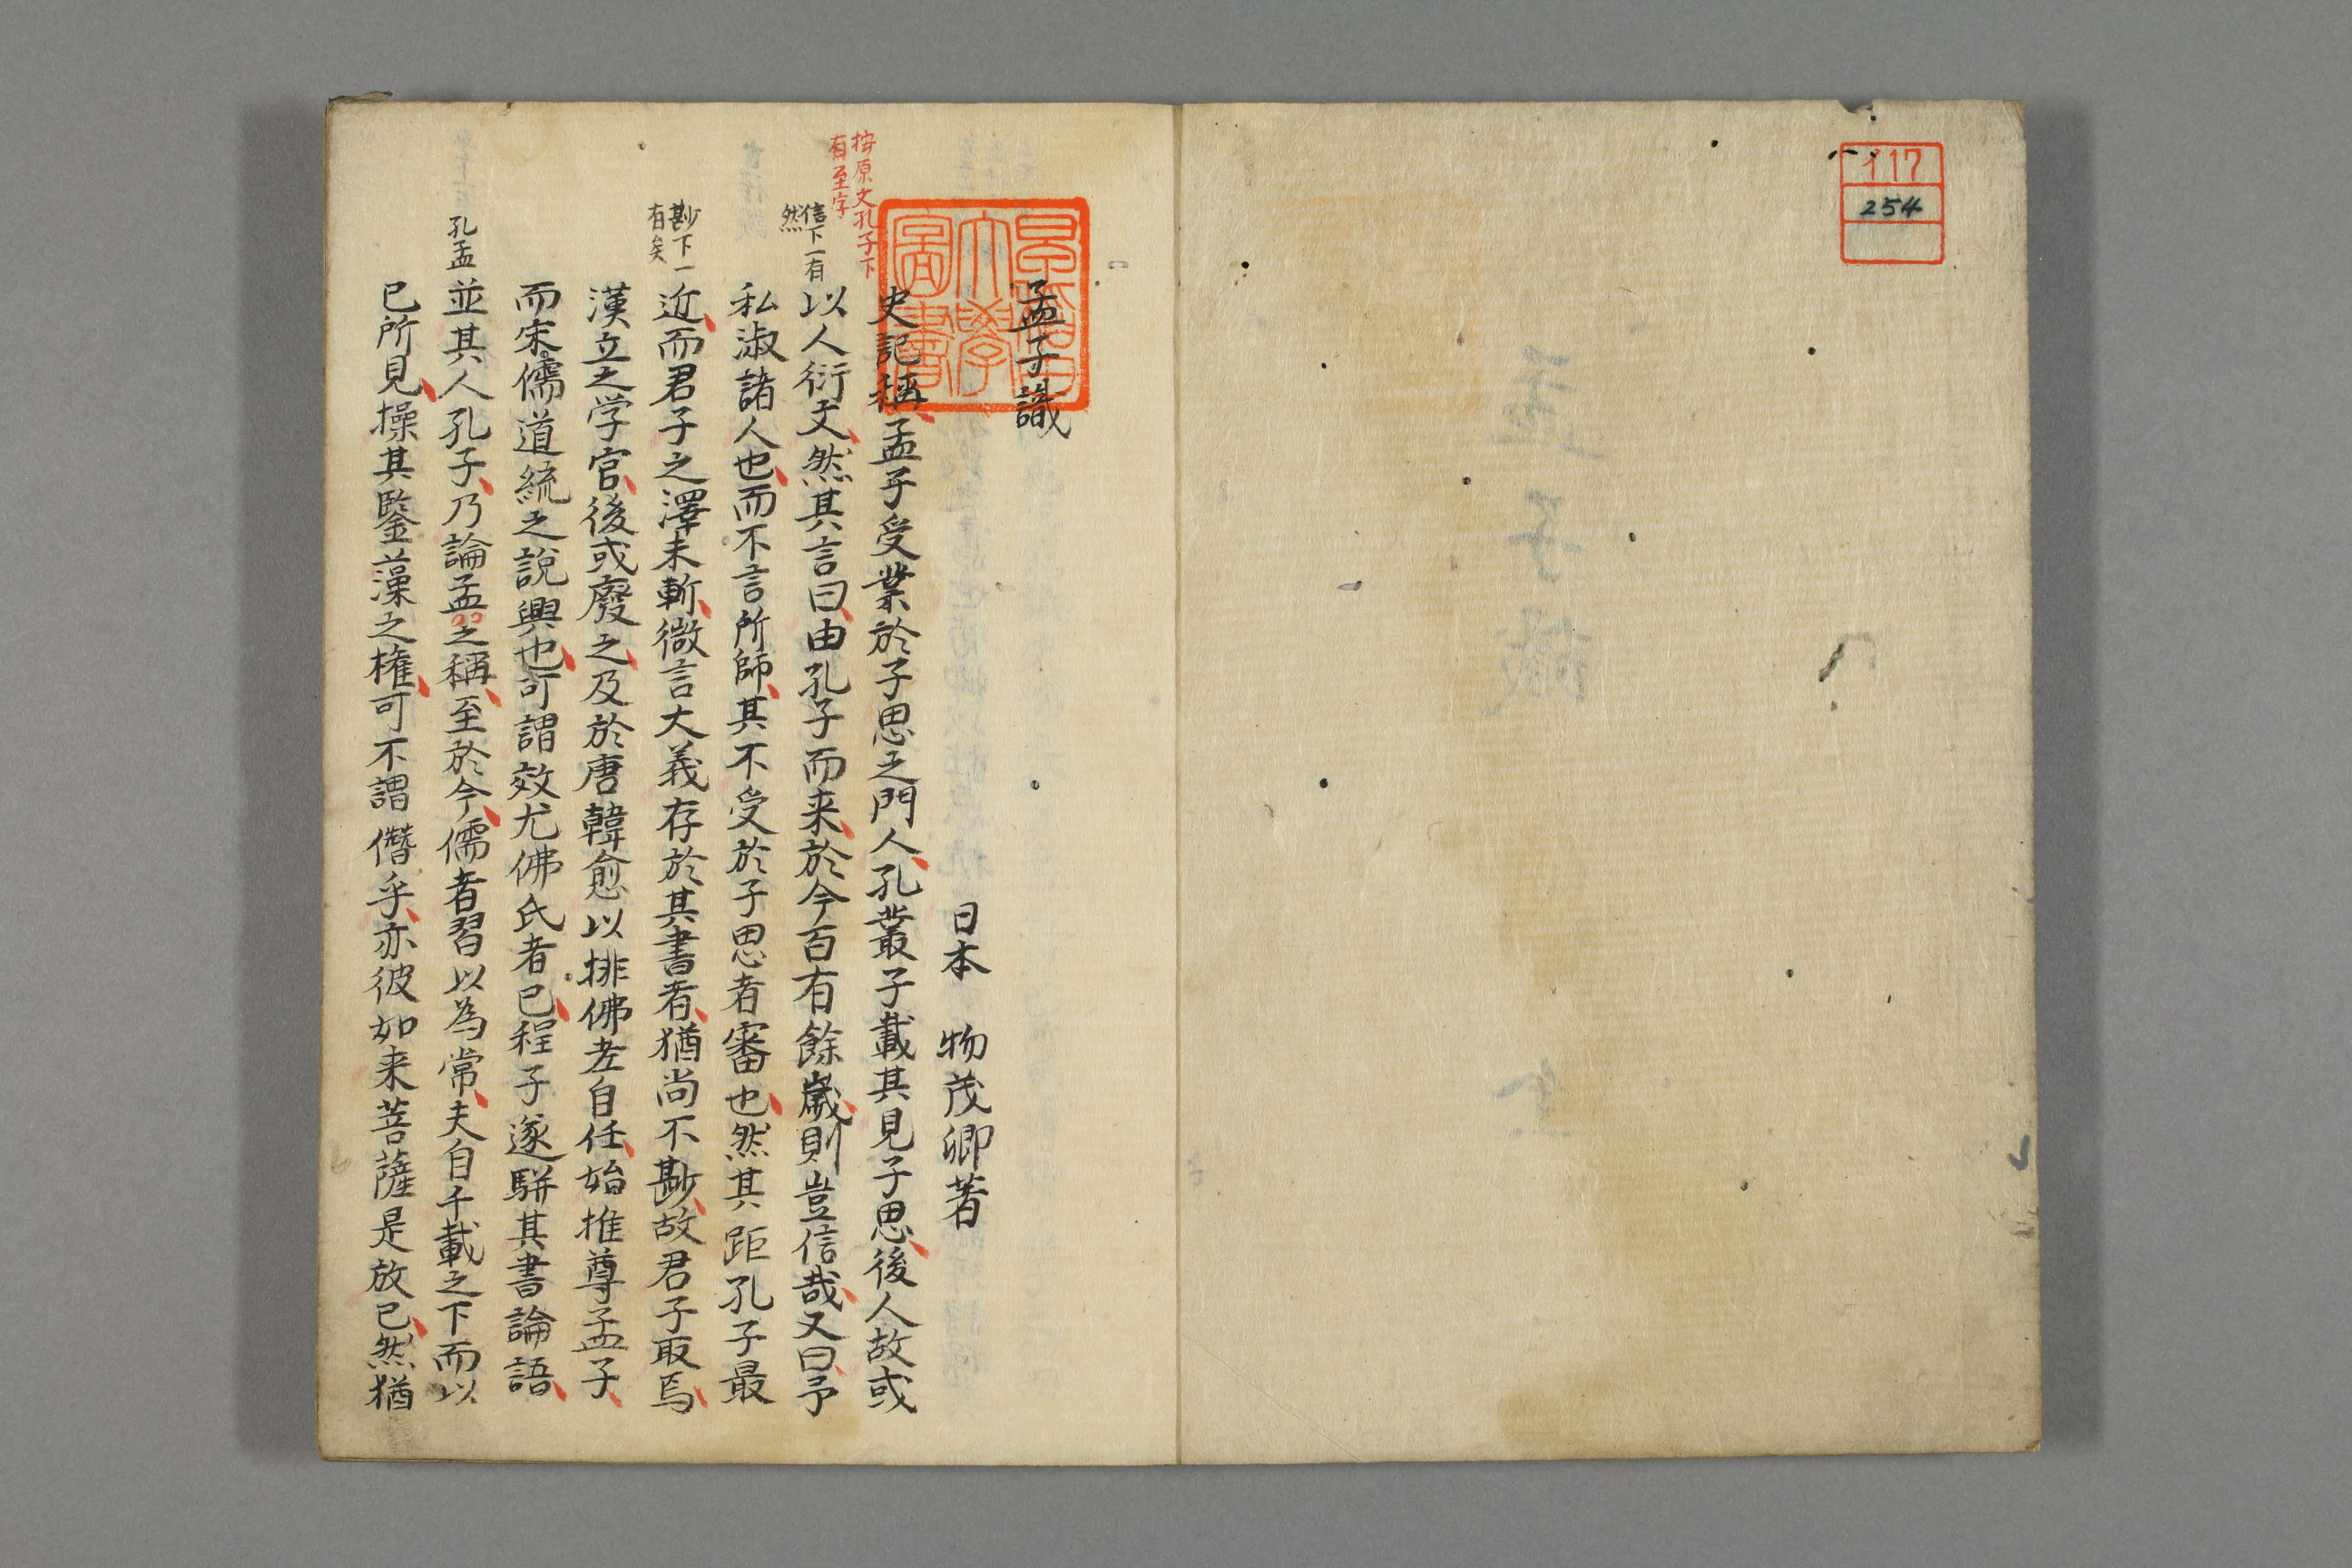 イ17
254
孟子識
日本 物茂卿著
史記稱孟子受業於子思之門人孔叢子載其見子思後人故或
以人衍文然其言曰由孔子而来於今百有餘歳則豈信哉又曰予
私淑諸人也而不言所師其不受於子思者審也然其距孔子最
近而君子之澤未斬微言大義存於其書者猶尚不尠故君子取焉
漢立之学官後或廢之及於唐韓愈以排佛老自任始推尊孟子
而宋儒道統之說興也可謂效尤佛氏者已程子遂駢其書論語
並其人孔子乃論孟之稱至於今儒者習以為常夫自千載之下而以
已所見操其鑒藻之権可不謂僭乎亦彼如来菩薩是放已然猶
按原文孔子下
有至字
信下一有
然
尠下一
有矣
孔孟